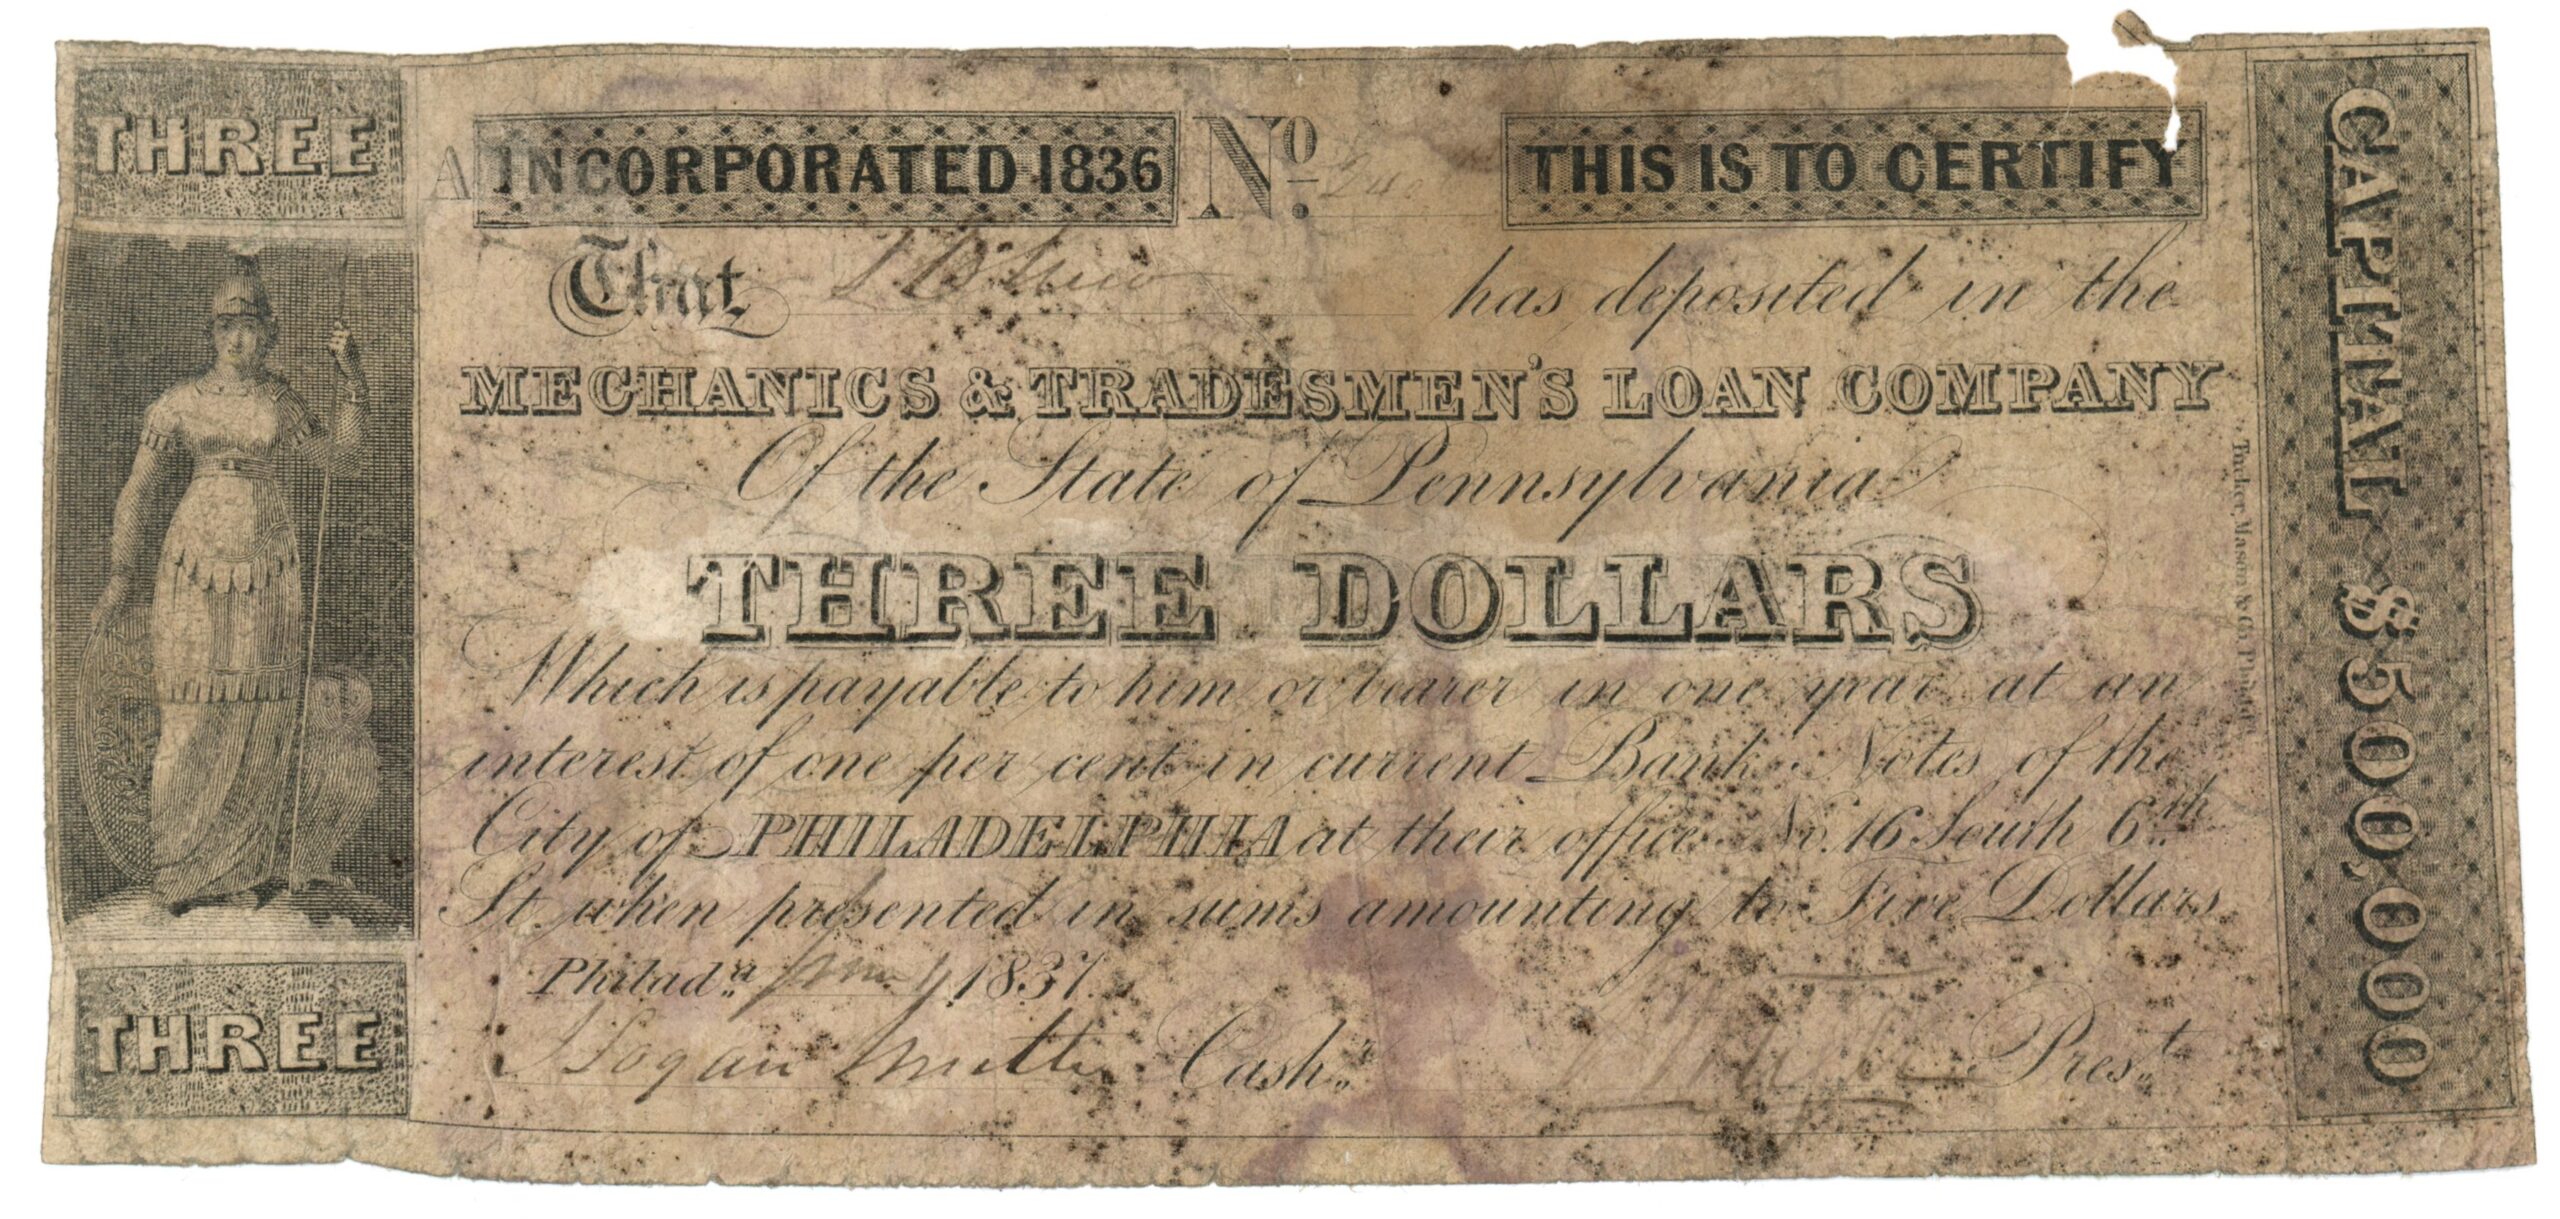 THREE
A INCORPORATED 1836 No. THIS IS TO CERTIFY
That has deposited in the
MECHANICS & TRADESMEN'S LOAN COMPANY
Of the State of Pennsylvania
THREE DOLLARS
Which is payable to him or bearer in one year at an
interest of one per cent in current Bank Notes of the
City of PHILADELPHIA at their office No. 16 South 6th
St. when presented in sums amounting to Five Dollars
Philada. 1837.
Logan Cashr. Prest.
THREE
CAPITAL $500,000
Tucker, Mason & Co.